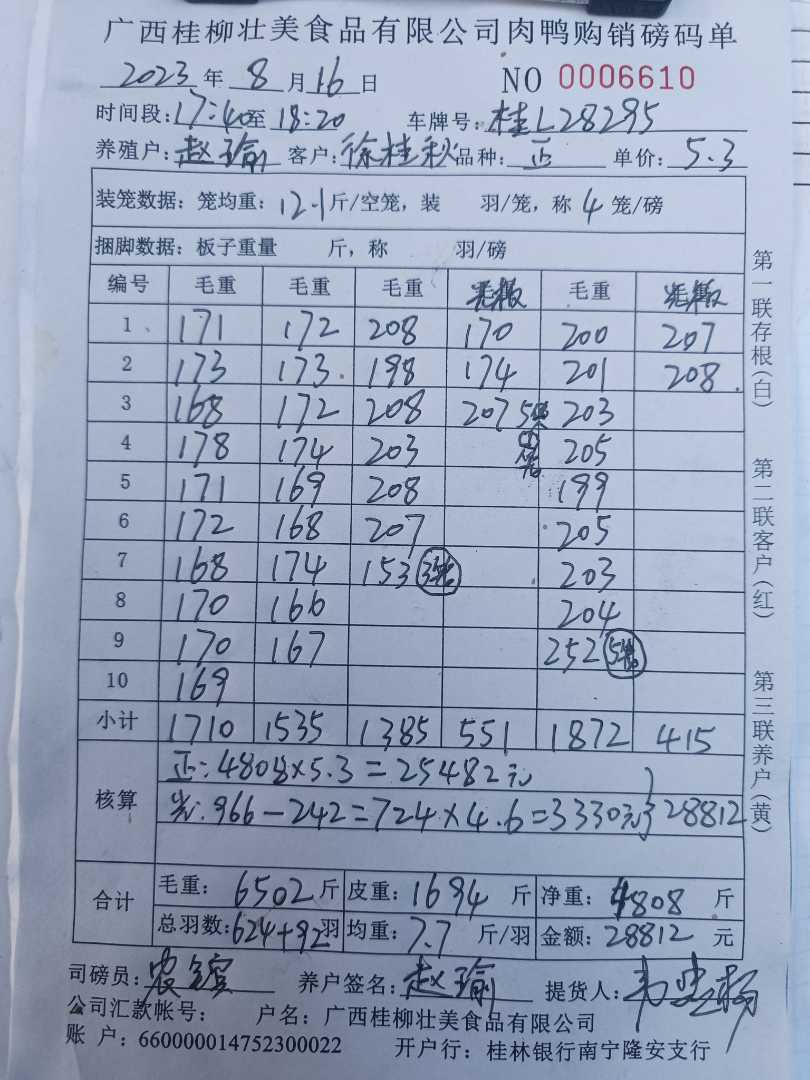 广西桂柳壮美食品有限公司肉鸭购销磅码单
2023年8月16日 NO 0006610
时间段:17:40至18:20 车牌号:桂L28295
养殖户:赵瑜 客户:徐桂秋 品种:正 单价:5.3
装笼数据:笼均重:12.1斤/空笼,装 羽/笼,称4笼/磅
捆脚数据:板子重量 斤,称 羽/磅
编号 毛重 毛重 毛重 毛重
1 171 172 208 170 200 207
2 173 173 198 174 201 208
3 168 172 208 207 203
4 178 174 203 205
5 171 169 208 199
6 172 168 207 205
7 168 174 153 203
8 170 166 204
9 170 167 252
10 169
小计 1710 1535 1385 551 1872 415
核算
正:4808×5.3=25482元
966-242=724×4.6=3330元 28812
合计 毛重:6502斤 皮重:1694斤 净重:4808斤
总羽数:624+92羽 均重:7.7斤/羽 金额:28812元
司磅员: 养户签名:赵瑜 提货人:
公司汇款帐号: 户名:广西桂柳壮美食品有限公司
账 户:660000014752300022 开户行:桂林银行南宁隆安支行
第一联存根(白)
第二联客户(红)
第三联养户(黄)